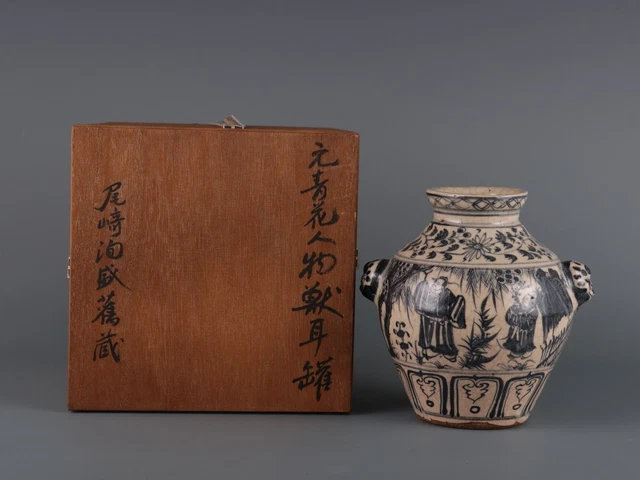 元青花人物獸耳罐
尾崎洵盛舊蔵